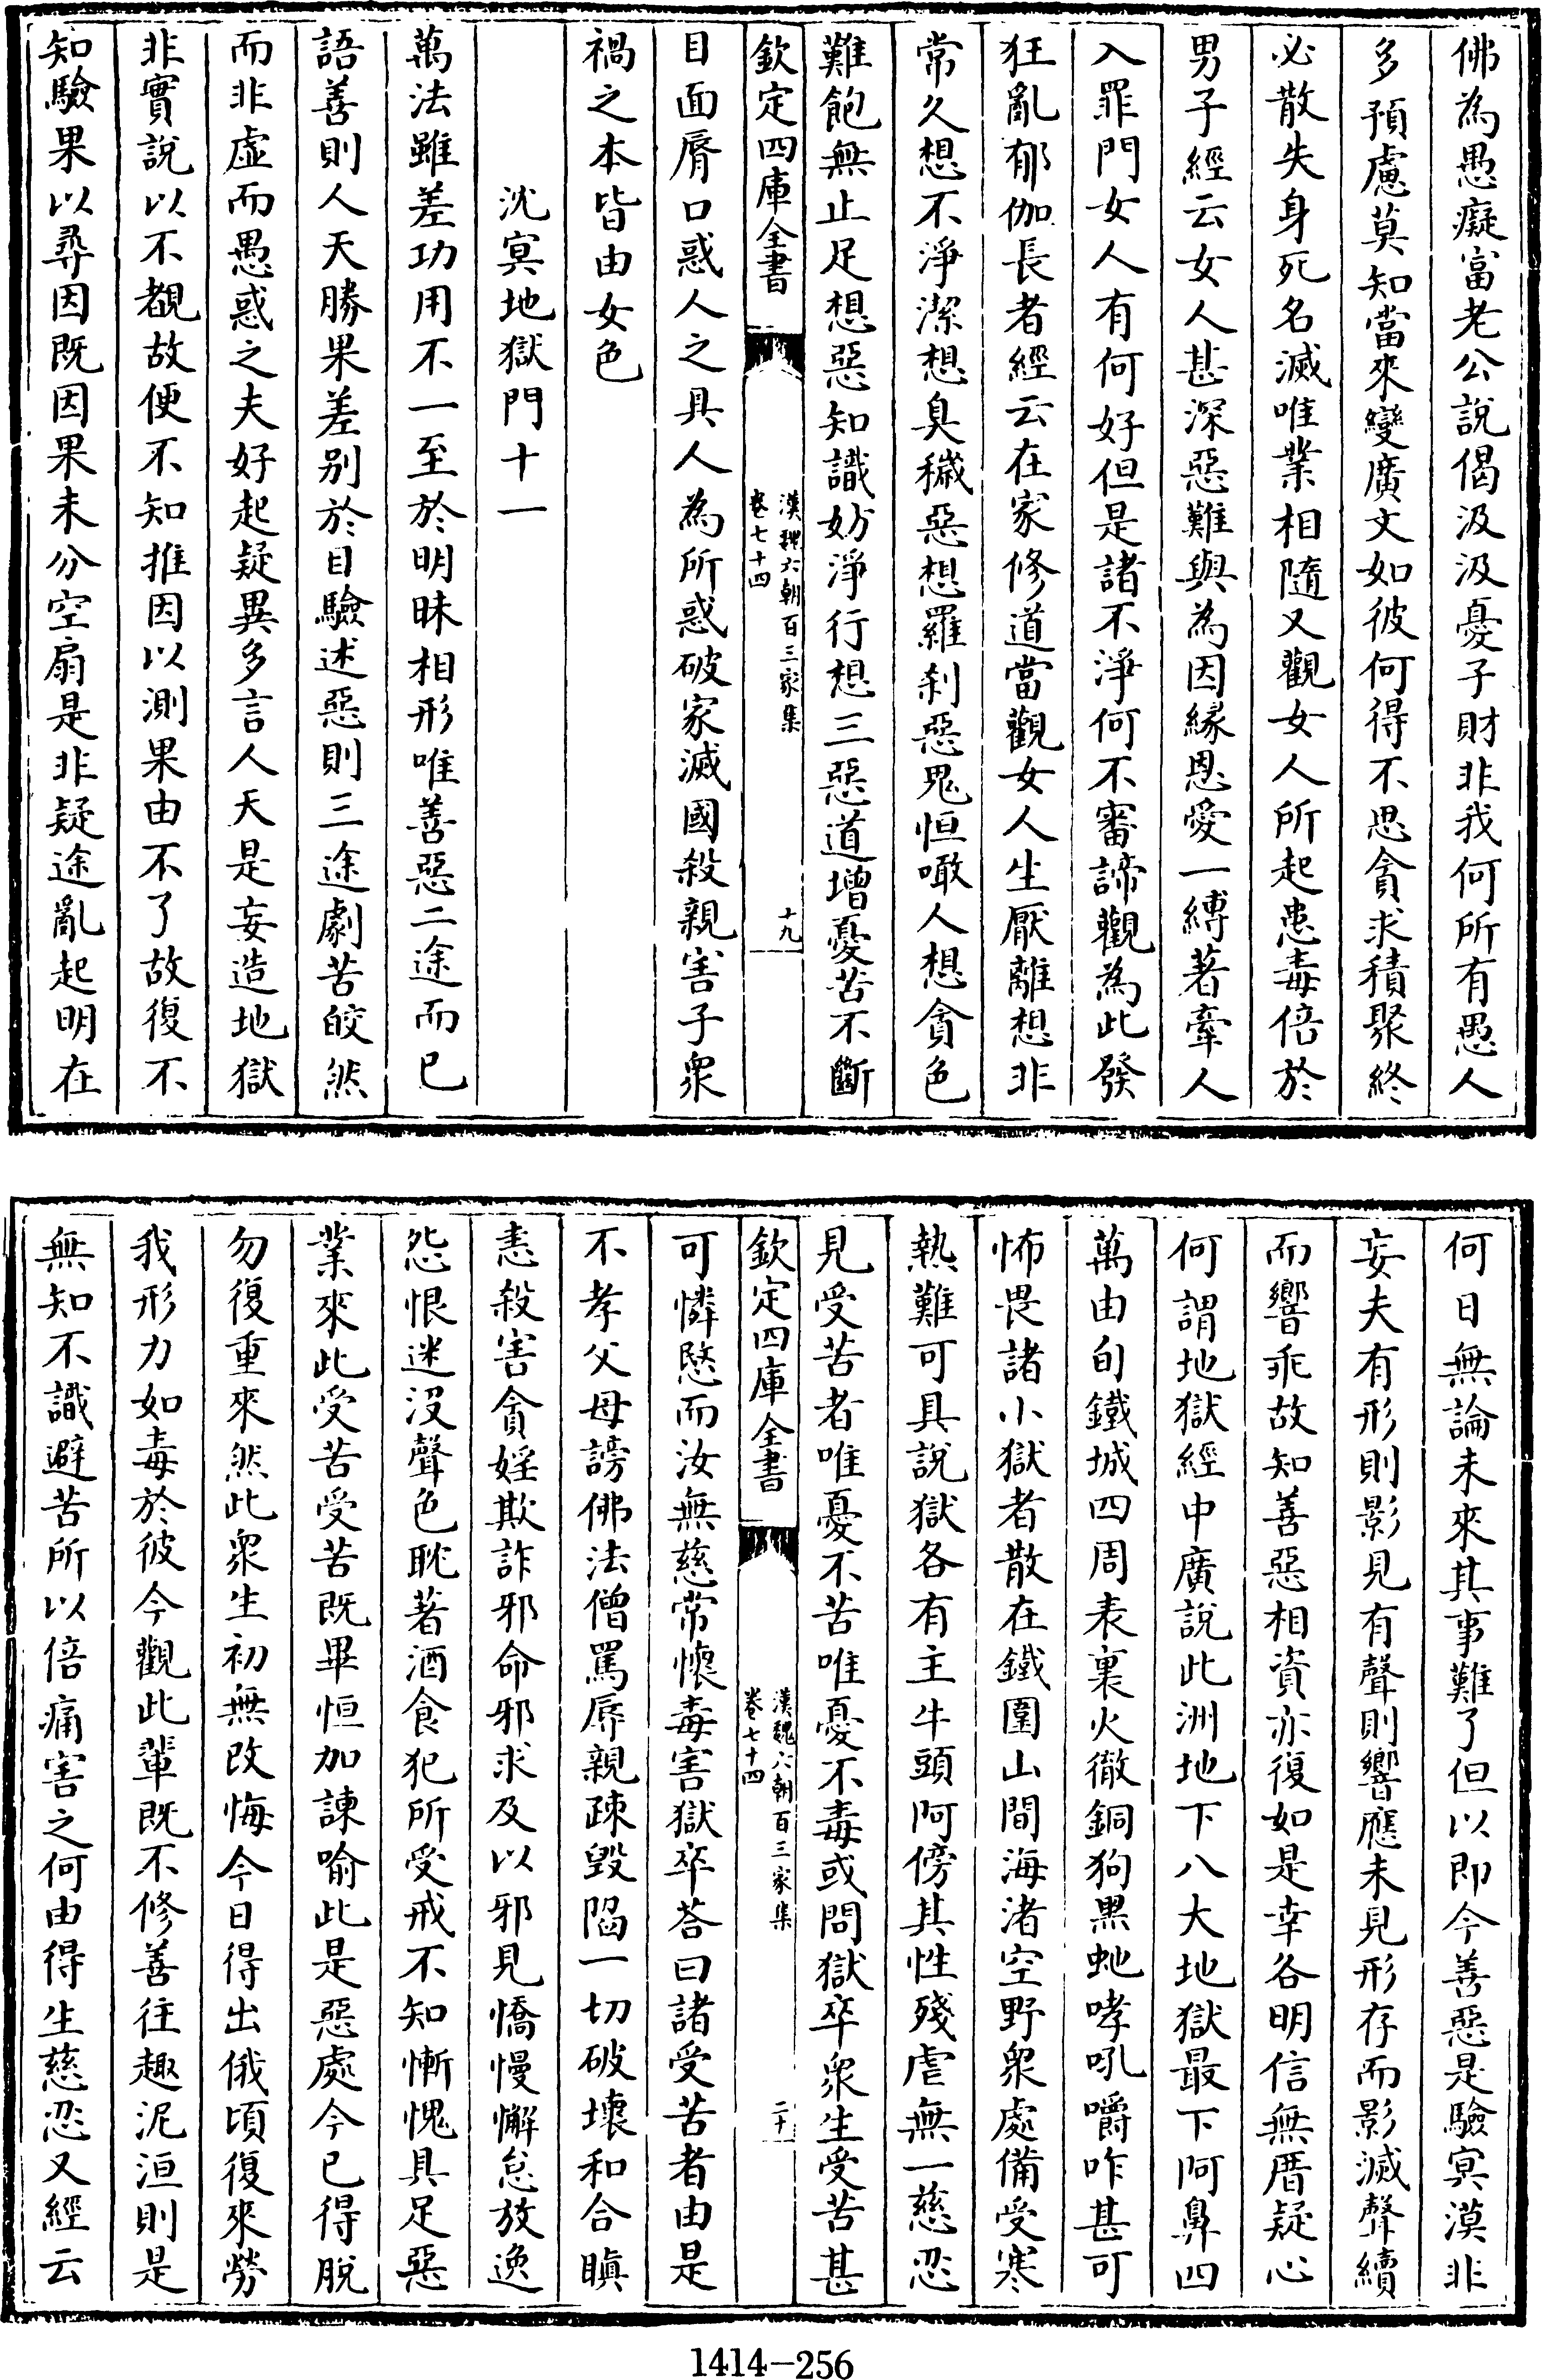 佛為愚癡富老公說偈汲汲憂子財非我何所有愚人
多預慮莫知當來變廣文如彼何得不思貪求積聚終
必散失身死名滅唯業相隨又觀女人所起患毒倍於
男子經云女人甚深惡難與為因緣恩愛一縛著牽人
入罪門女人有何好但是諸不淨何不審諦觀為此發
狂亂郁伽長者經云在家修道當觀女人生厭離想非
常久想不淨潔想臭穢惡想羅刹惡鬼恒噉人想貪色
難飽無止足想惡知識妨淨行想三惡道增憂苦不斷
欽定四庫全書
漢魏六朝百三家集
卷七十四
十九
目面脣口惑人之具人為所惑破家滅國殺親害子衆
禍之本皆由女色
沈冥地獄門十一
萬法雖差功用不一至於明昧相形唯善惡二途而已
語善則人天勝果差别於目驗述惡則三途劇苦皎然
而非虛而愚惑之夫好起疑異多言人天是妄造地獄
非實說以不覩故便不知推因以測果由不了故復不
知驗果以尋因既因果未分空扇是非疑途亂起明在
何日無論未來其事難了但以即今善惡是驗冥漠非
妄夫有形則影見有聲則響應未見形存而影滅聲續
而響乖故知善惡相資亦復如是幸各明信無厝疑心
何謂地獄經中廣說此洲地下八大地獄最下阿鼻四
萬由旬鐵城四周表裏火徹銅狗黑虵哮吼嚼咋甚可
怖畏諸小獄者散在鐵圍山間海渚空野衆處備受寒
熱難可具說獄各有主牛頭阿傍其性殘虐無一慈忍
見受苦者唯憂不苦唯憂不毒或問獄卒衆生受苦甚
欽定四庫全書
漢魏六朝百三家集
卷七十四
二十
可憐愍而汝無慈常懷毒害獄卒荅曰諸受苦者由是
不孝父母謗佛法僧罵辱親疎毀䧟一切破壞和合瞋
恚殺害貪婬欺詐邪命邪求及以邪見憍慢懈怠放逸
怨恨迷没聲色耽著酒食犯所受戒不知慚愧具足惡
業來此受苦受苦既畢恒加諫喻此是惡處今已得脫
勿復重來然此衆生初無改悔今日得出俄頃復來勞
我形力如毒於彼今觀此輩既不修善往趣泥洹則是
無知不識避苦所以倍痛害之何由得生慈忍又經云
1414-256